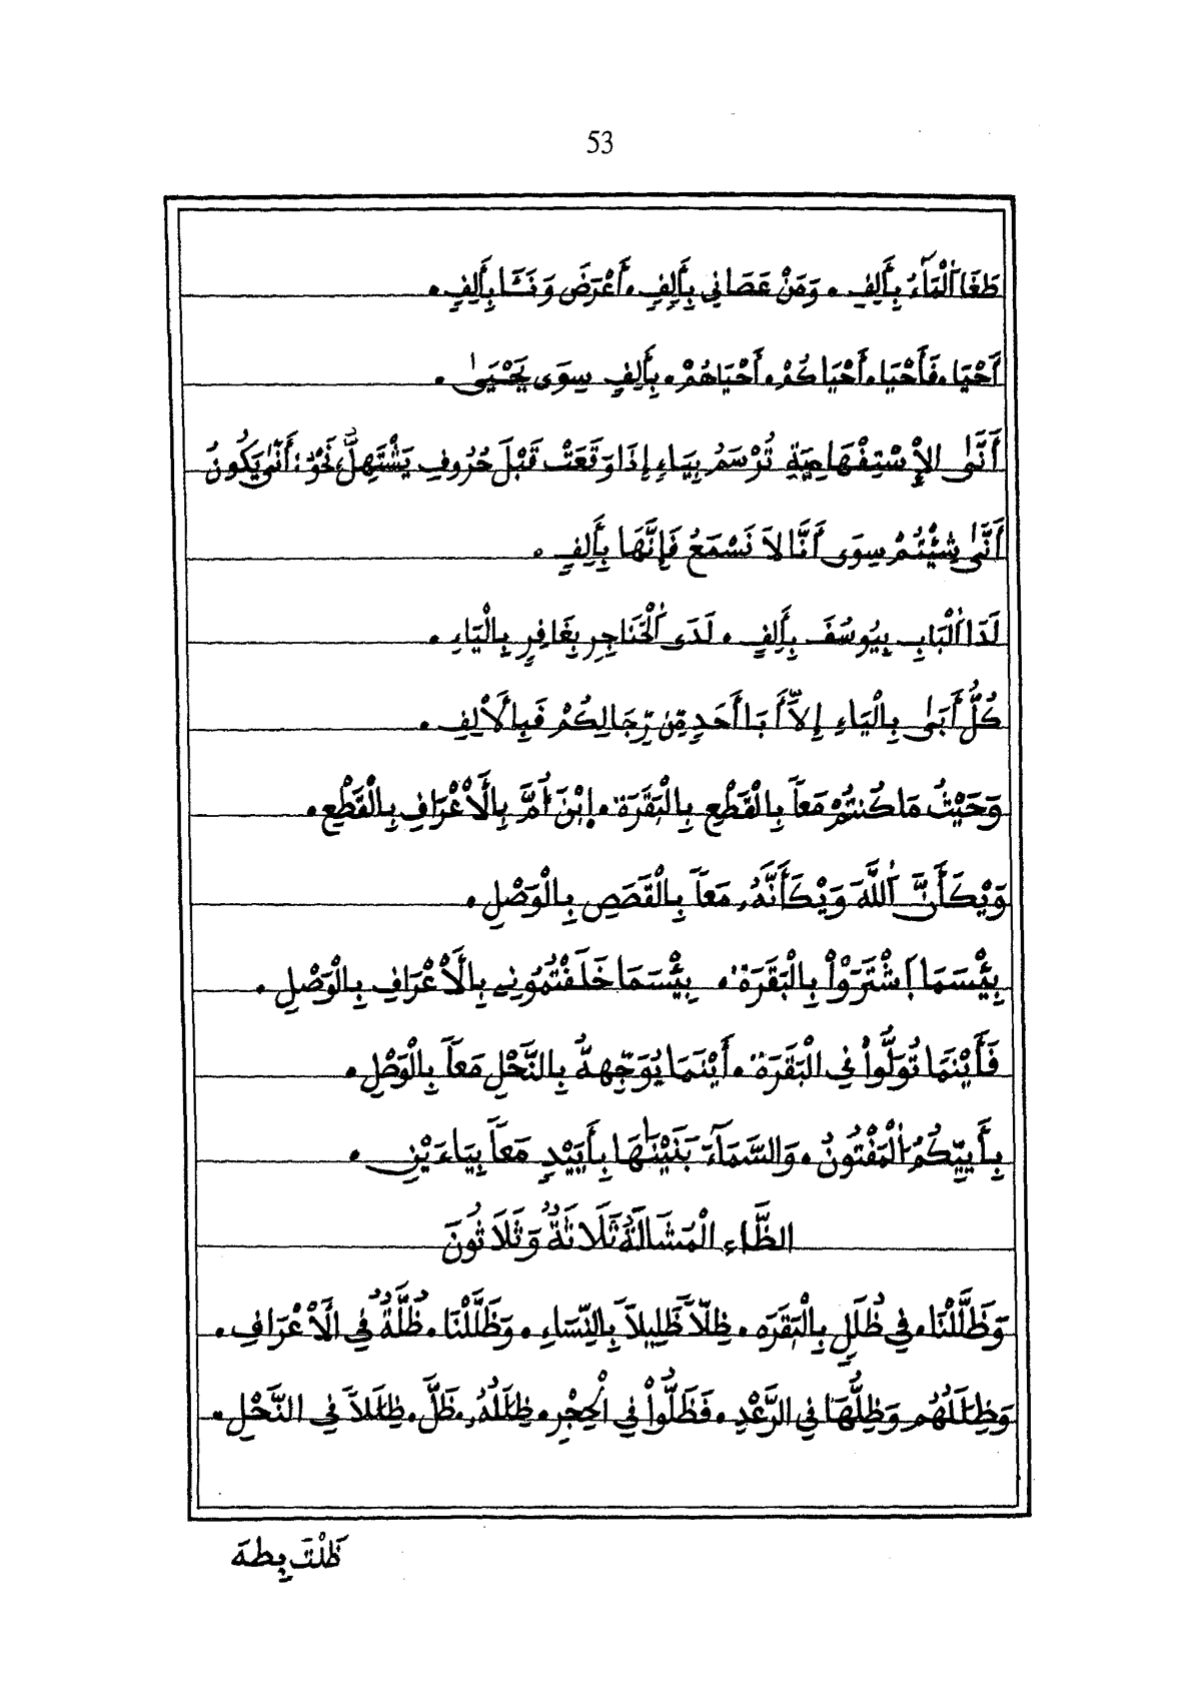 53
طَغَا اَ۬لْمَآءُ بِأَلِفٍ • وَمَنْ عَصَانِي بِأَلِفٍ • أَعْرَضَ وَنَـَٔا بِأَلِفٍ •
أَحْيَا • فَأَحْيَا • أَحْيَاكُمْ • أَحْيَاهُمْ • بِأَلِفٍ سِوَى يَحْيَىٰ •
أَنَّىٰ الإِسْتِفْهَامِيَةِ تُرْسَمُ بِيَاءٍ إِذَا وَقَعَتْ قَبْلَ حُرُوفِ يَشْتَهِلُّ، نَحْوَ: أَنَّىٰ يَكُونُ
أَنَّىٰ شِئْتُمْ سِوَى أَنَّا لاَ نَسْمَعُ فَإِنَّهَا بِأَلِفٍ •
لَدَا اَ۬لْبَابِ بِيُوسُفَ بِأَلِفٍ • لَدَى اَ۬لْحَنَاجِرِ بِغَافِرٍ بِالْيَاءِ •
كُلُّ أَبَىٰ بِالْيَاءِ إِلآَّ أَبَا أَحَدٍ مِّن رِّجَالِكُمْ فَبِالْأَلِفِ •
وَحَيْثُ مَا كُنتُمْ مَعاً بِالْقَطْعِ بِالْبَقَرَةِ • اِبْنَ أُمَّ بِالْأَعْرَافِ بِالْقَطْعِ •
وَيْكَأَنَّ اَ۬للَّهَ وَيْكَأَنَّهُۥ مَعاً بِالْقَصَصِ بِالْوَصْلِ •
بِئْسَمَا اَ۪شْتَرَوْاْ بِالْبَقَرَةِ • بِئْسَمَا خَلَفْتُمُونِے بِالْأَعْرَافِ بِالْوَصْلِ •
فَأَيْنَمَا تُوَلُّواْ فِي الْبَقَرَةِ • أَيْنَمَا يُوَجِّههُّ بِالنَّحْلِ مَعاً بِالْوَصْلِ •
بِأَييِّكُمُ اُ۬لْمَفْتُونُ • وَالسَّمَآءَ بَنَيْنَٰهَا بِأَييْدٍ مَعاً بِيَاءَيْنِ •
الظَّاءِ الْمَشَالَةُ ثَلَاثَةٌ وَثَلَاثُونَ
وَظَلَّلْنَا • فِي ظُلَلٍ بِالْبَقَرَه • ظِلّاً ظَلِيلاً بِالنِّسَاءِ • وَظَلَّلْنَا • ظُلَّةٌ فِي الْأَعْرَافِ •
وَظِلَٰلُهُم وَظِلُّهَا فِي الرَّعْدِ • فَظَلُّواْ فِي الْحِجْرِ • ظِلَٰلُهُۥ • ظَلَّ • ظِلَٰلاً فِي النَّحْلِ •
ظَلْتَ بِطه